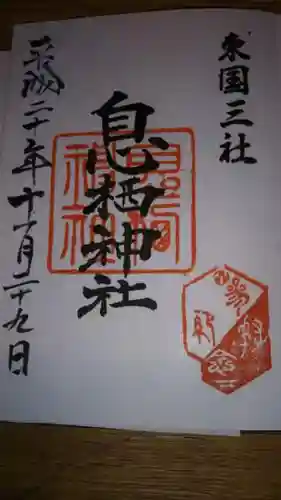 東国三社
息栖神社
平成二十年十一月二十九日